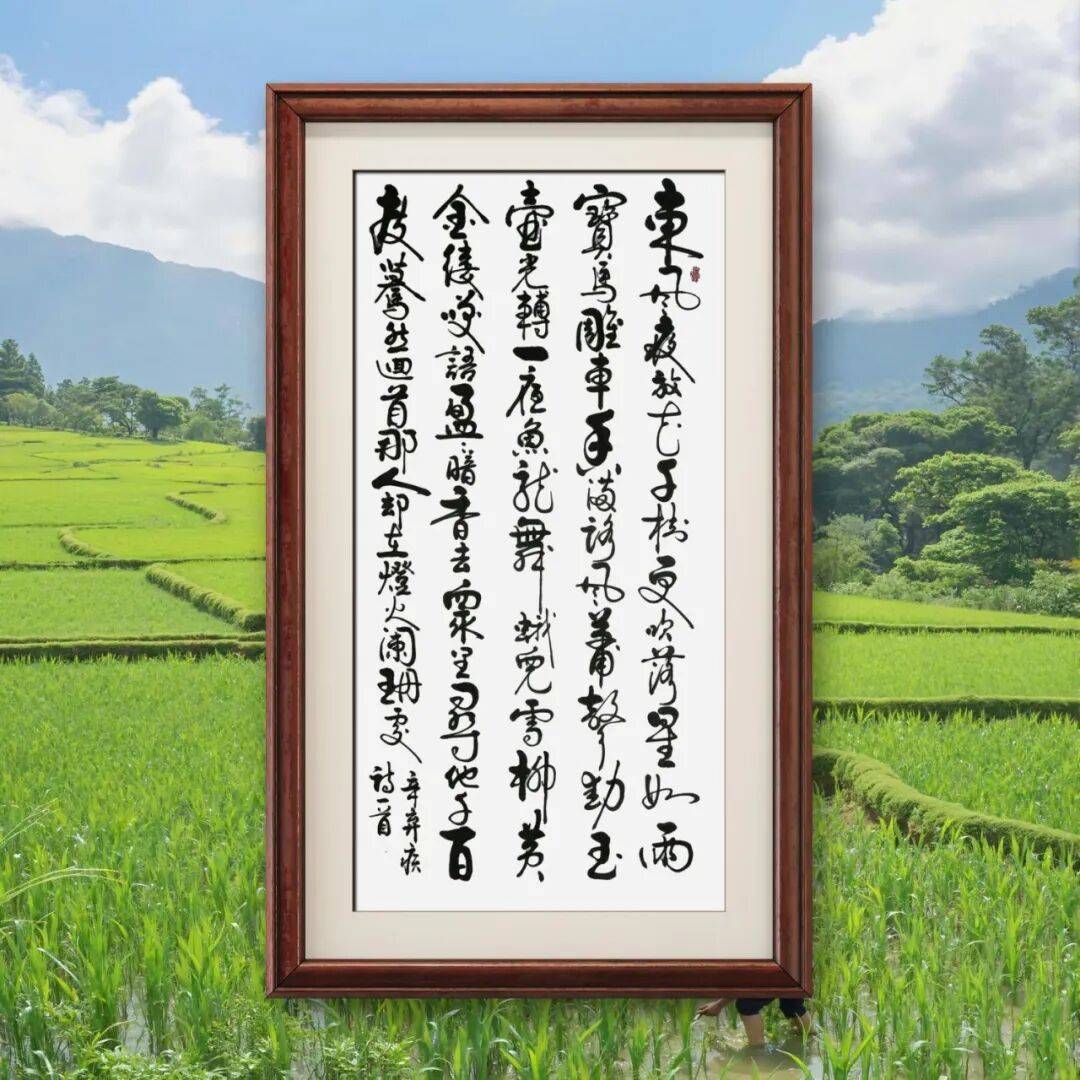 東風夜放花千樹更吹落星如雨
寶馬雕車香滿路風蕭聲動玉
壺光轉一夜魚龍舞蛾兒雪柳黃
金縷笑語盈〻暗香去眾里尋他千百
度驀然迴首那人却在燈火闌珊處
辛弃疾
詩一首